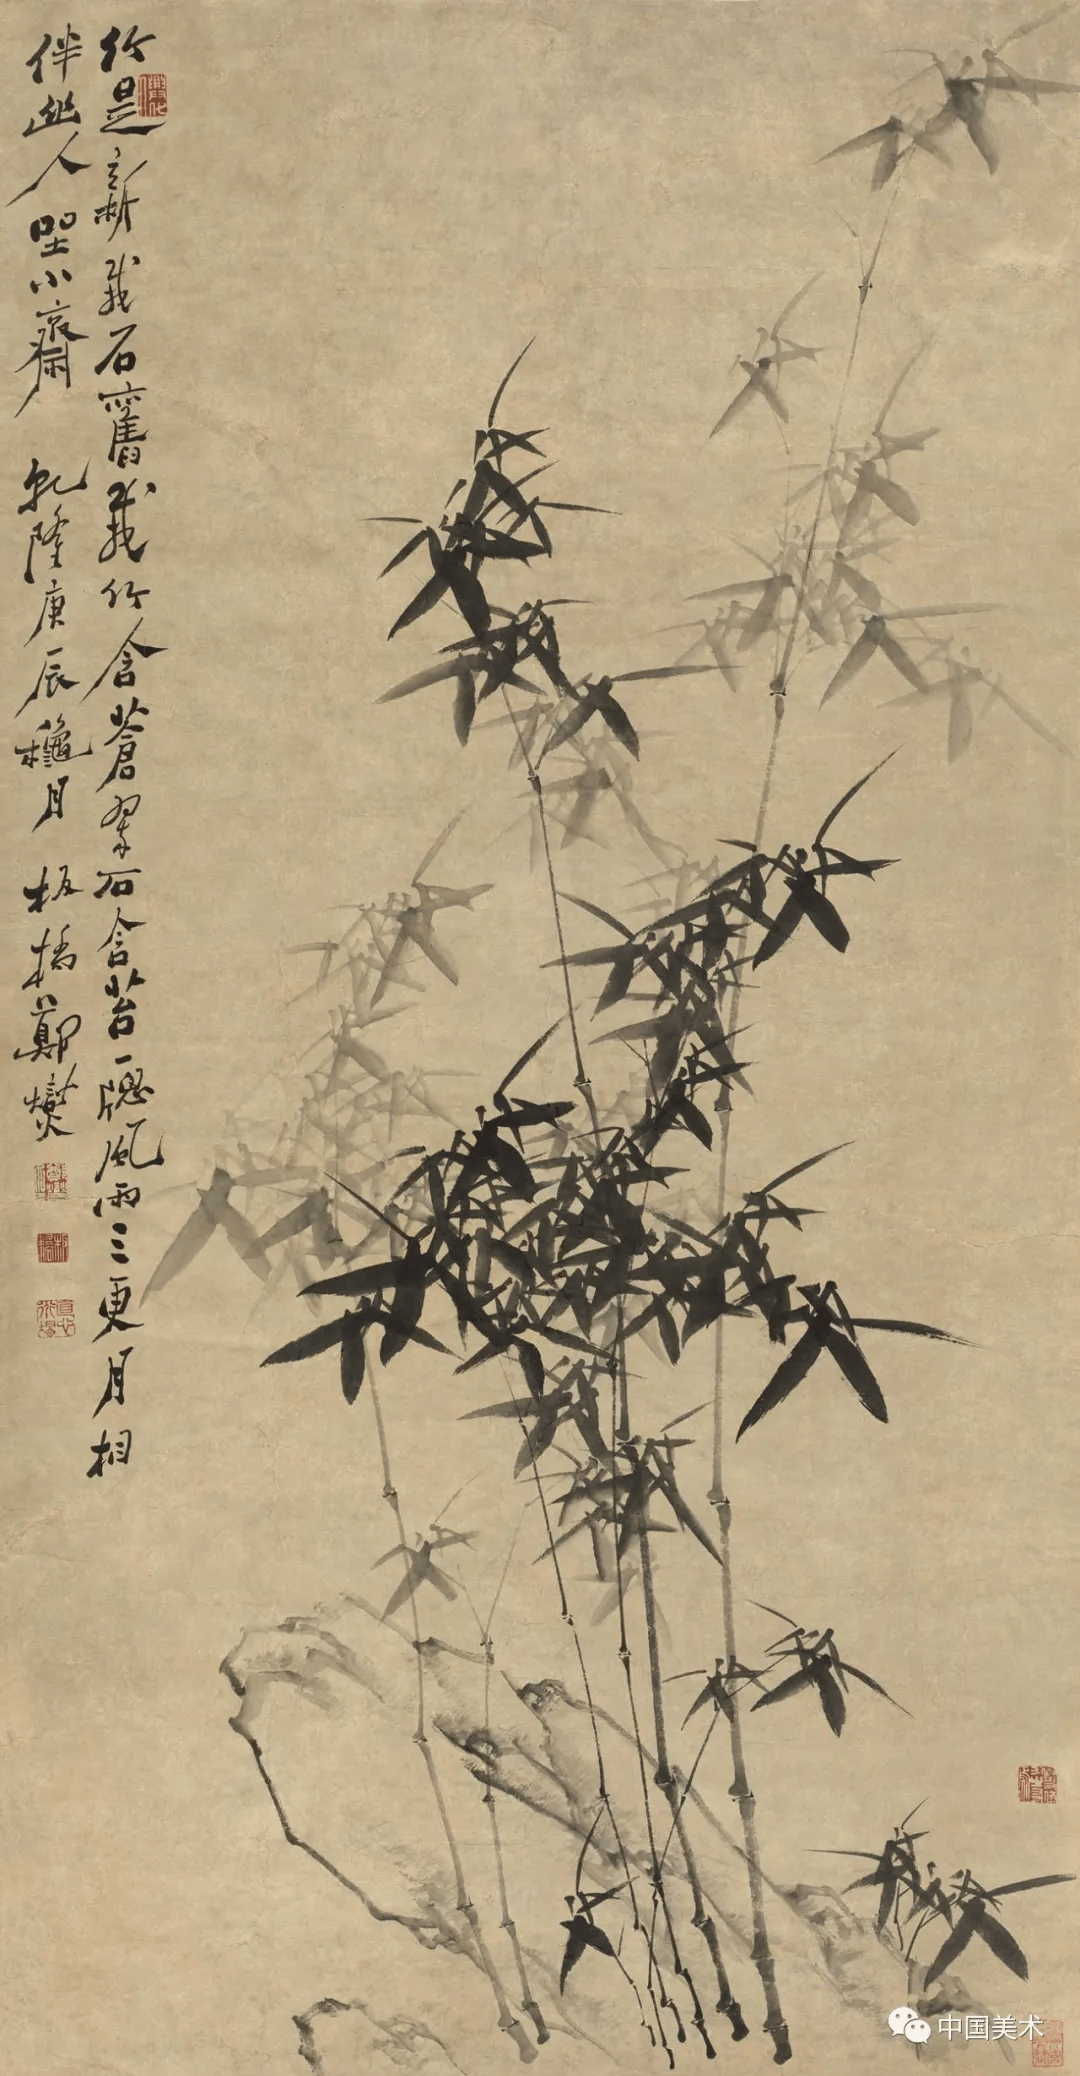 竹是新栽石舊栽竹含蒼翠石含苔一牕風雨三更月相
伴幽人坐小齋 乾隆庚辰穐月 板橋鄭燮
中国美术